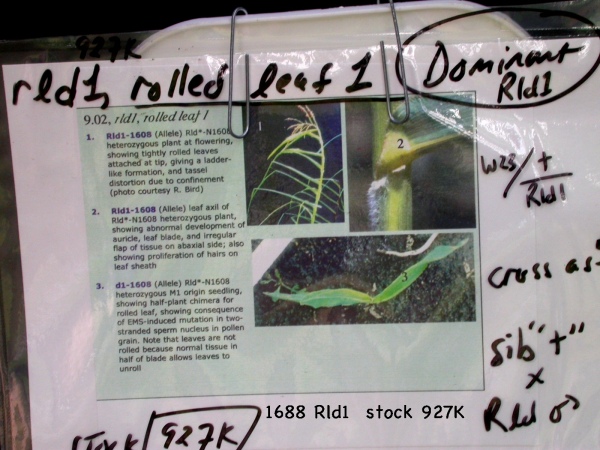 927K
rld1, rolled leaf 1
Dominant
Rld1
9.02, rld1, rolled leaf 1
1. Rld1-1608 (Allele) Rld*-N1608
heterozygous plant at flowering,
showing tightly rolled leaves
attached at tip, giving a ladder-
like formation, and tassel
distortion due to confinement
(photo courtesy R. Bird)
2. Rld1-1608 (Allele) leaf axil of
Rld*-N1608 heterozygous plant,
showing abnormal development of
auricle, leaf blade, and irregular
flap of tissue on abaxial side; also
showing proliferation of hairs on
leaf sheath
3. d1-1608 (Allele) Rld*-N1608
heterozygous M1 origin seedling,
showing half-plant chimera for
rolled leaf, showing consequence
of EMS-induced mutation in two-
stranded sperm nucleus in pollen
grain. Note that leaves are not
rolled because normal tissue in
half of blade allows leaves to
unroll
1
2
3
W23/+
Rld1
cross as
sib "+"
x
Rld
1688 Rld1 stock 927K
stock 927K